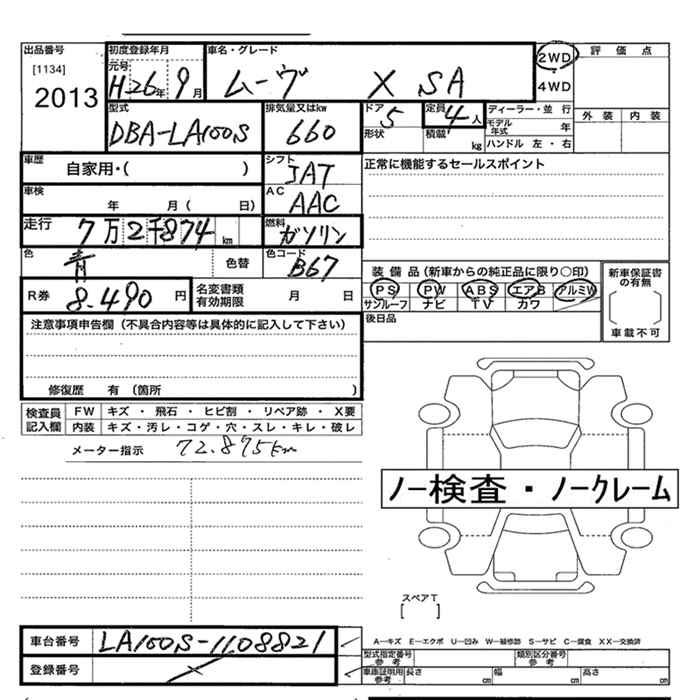 出品番号
[1134]
2013
初度登録年月
元号
H26年 9月
車名・グレード
ムーヴ X SA
2WD
4WD
評価点
外装 内装
型式
DBA-LA100S
排気量又はkw
660
ドア
5
形状
定員
4人
積載
kg
ディーラー・並行
モデル年式 年
ハンドル 左・右
車歴
自家用・( )
シフト
IAT
正常に機能するセールスポイント
車検
年 月( 日)
AC
AAC
走行
7万2千874km
燃料
ガソリン
色
青
色替
色コード
B67
R券
8.490円
名変書類有効期限
月 日
装備品(新車からの純正品に限り○印)
PS PW ABS エアB アルミW
サンルーフ ナビ TV カワ
新車保証書の有無
車載不可
後日品
注意事項申告欄(不具合内容等は具体的に記入して下さい)
修復歴 有(箇所 )
検査員記入欄
FW キズ・飛石・ヒビ割・リペア跡・X要
内装 キズ・汚レ・コゲ・穴・スレ・キレ・破レ
メーター指示 72.875km
ノー検査・ノークレーム
スペアT
[ ]
車台番号
LA100S-1108821
登録番号
A―キズ E―エクボ U―凹み W―補修跡 S―サビ C―腐食 XX―交換済
型式指定番号 参考
類別区分番号 参考
車庫証明用 参考
長さ cm 幅 cm 高さ cm